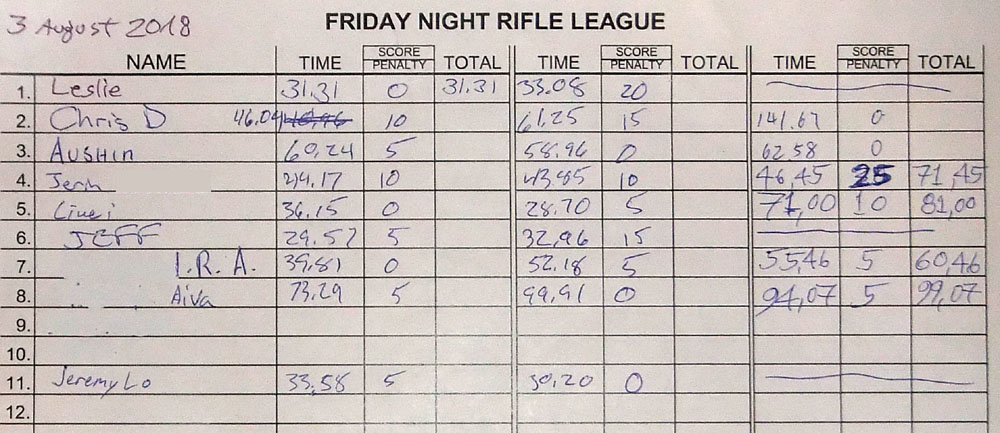 3 August 2018
FRIDAY NIGHT RIFLE LEAGUE
NAME TIME SCORE PENALTY TOTAL TIME SCORE PENALTY TOTAL TIME SCORE PENALTY TOTAL
1. Leslie 31.31 0 31.31 33.08 20
2. Chris D 46.04 10 61.25 15 141.67 0
3. 60.24 5 58.96 0 62.58 0
4. 10 43.85 10 46,45 25 71,45
5. 36.15 0 28.70 5 71,00 10 81,00
6. JEFF 29.57 5 32,96 15
7. I.R.A. 39.81 0 52.18 5 55,46 5 60,46
8. Aiva 73.29 5 99,91 0 94,07 5 99,07
9.
10.
11. Jeremy Lo 33.58 5 30,20 0
12.